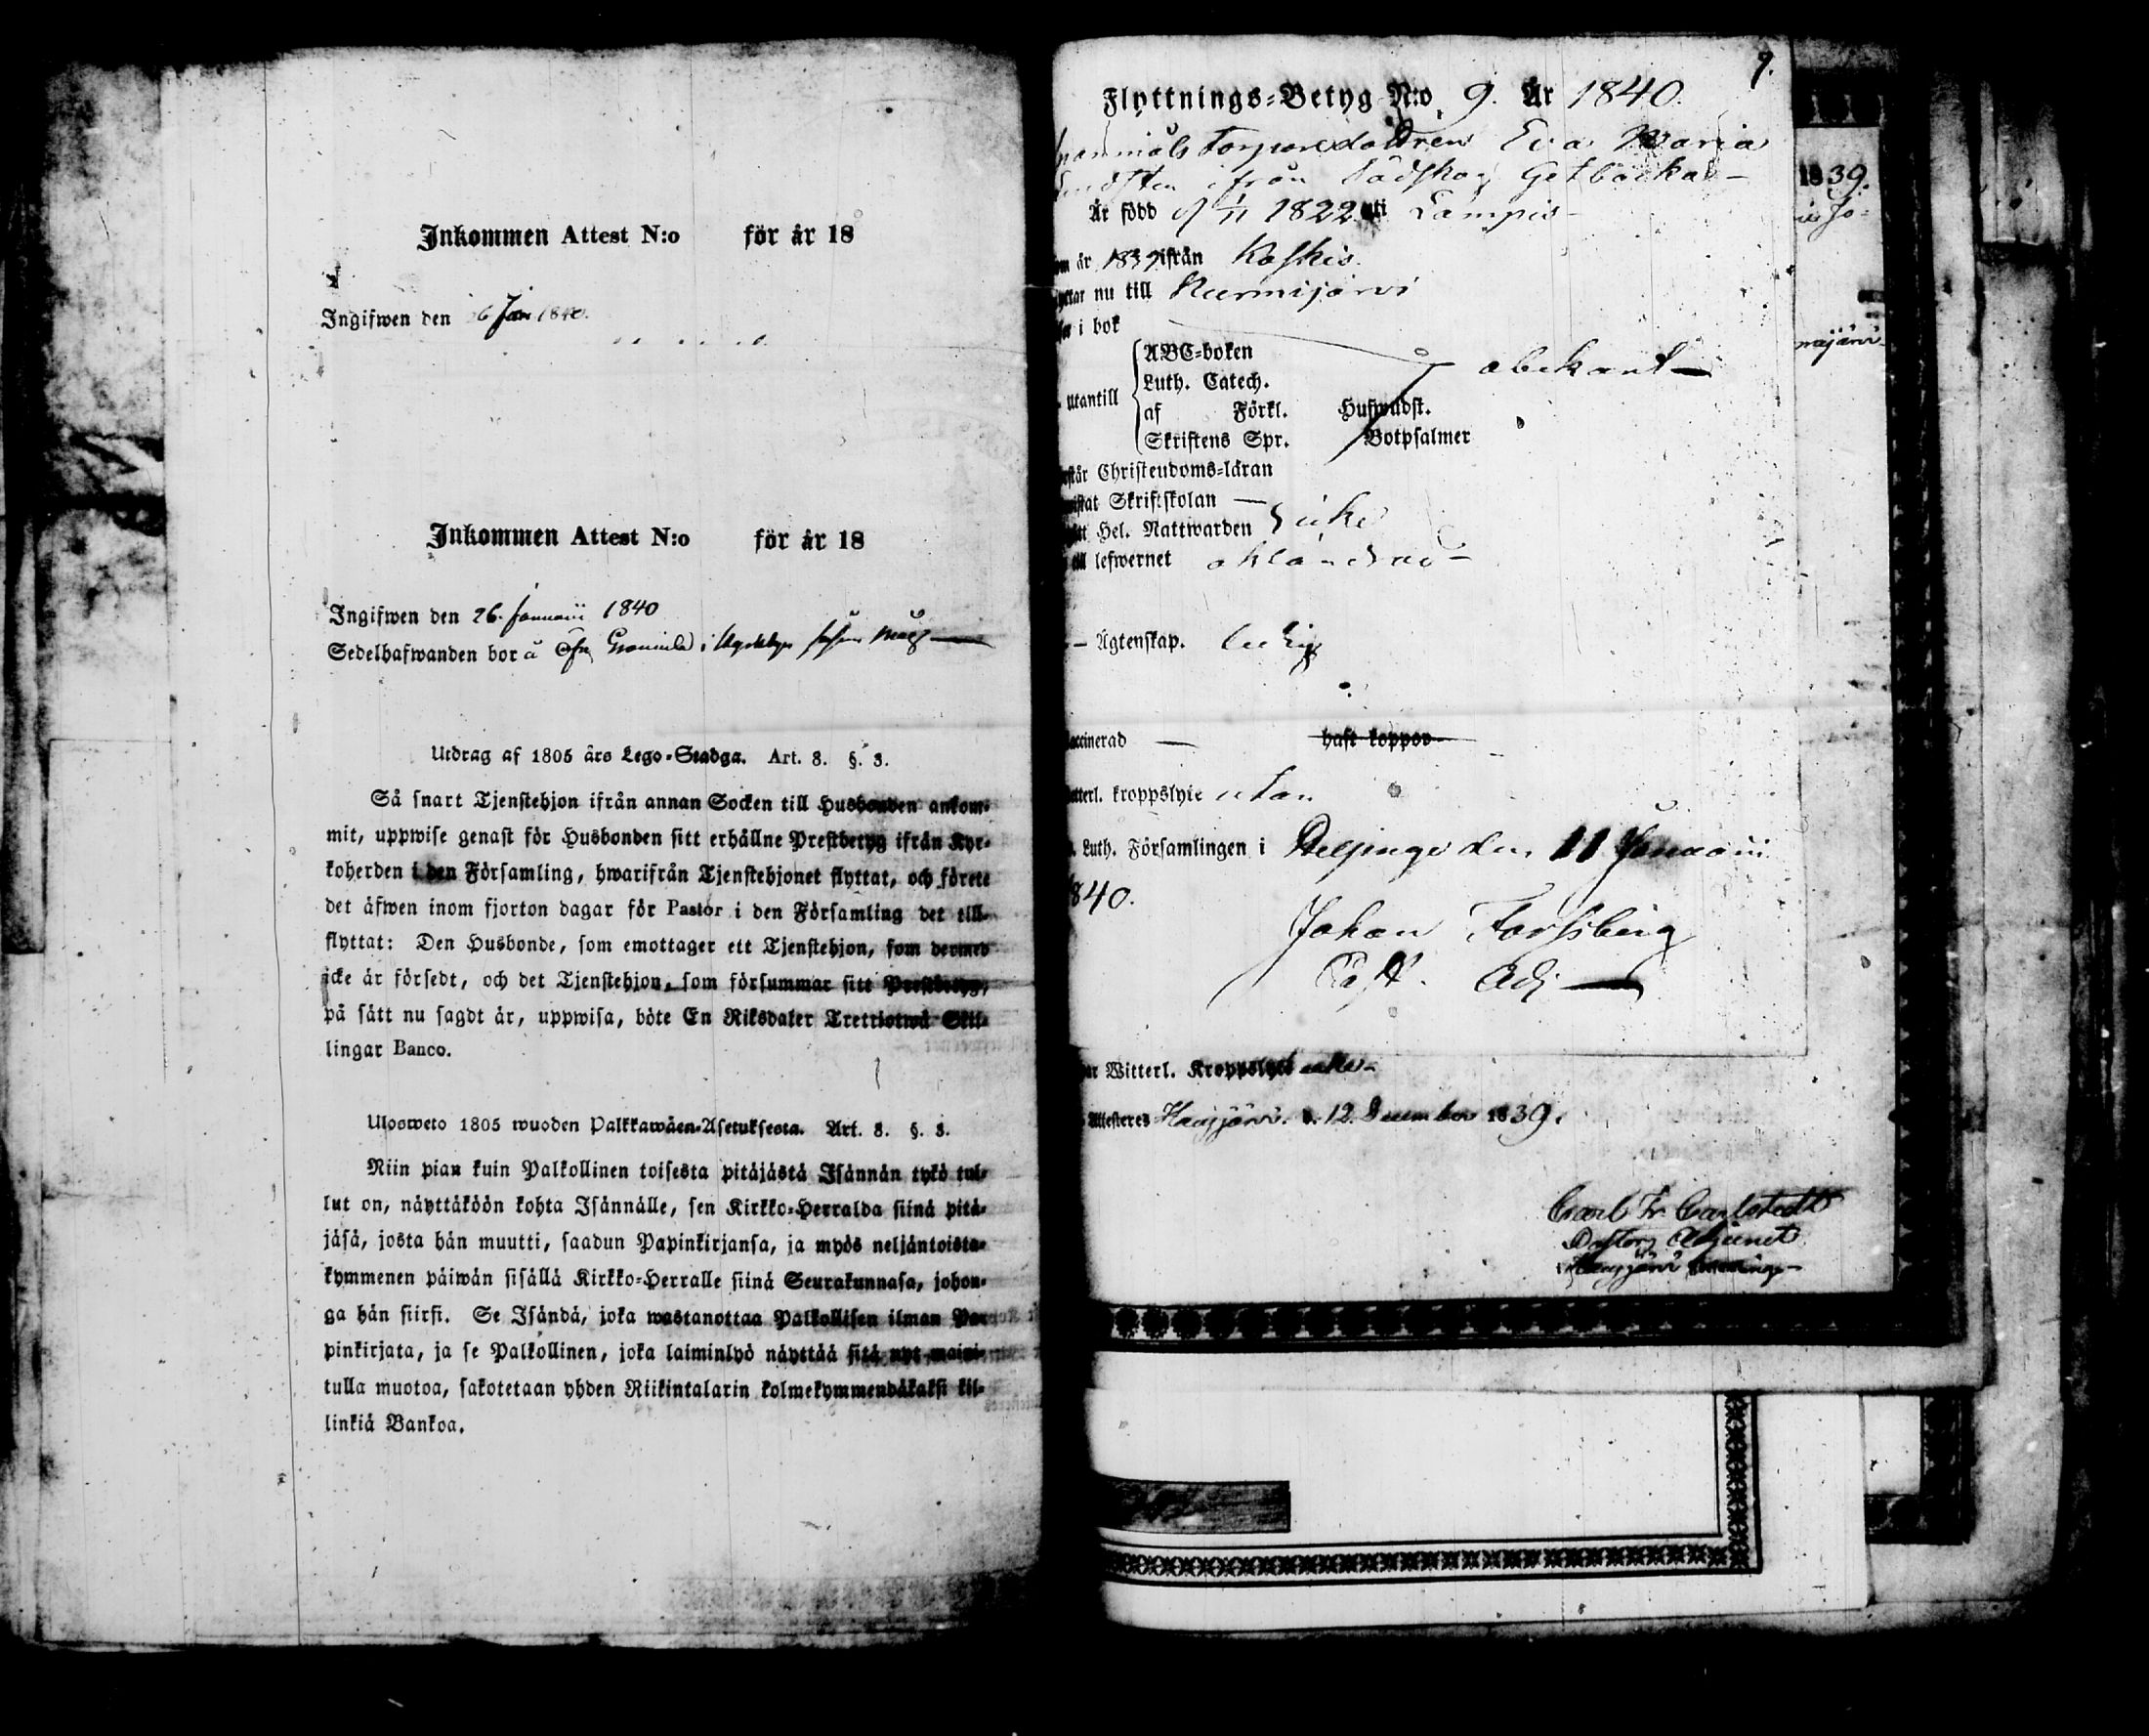 Inkommen Attest N:o för år 18
Ingifwen den 26 Jan 1840.
Inkommen Attest N:o för år 18
Ingifwen den 26. Januarii 1840
Sedelhafwanden bor å
Utdrag af 1805 års Lego-Stadga. Art. 8. §. 3.
Så snart Tjenstehjon ifrån annan Socken till Husbonden ankom-
mit, uppwise genast för Husbonden sitt erhållne Prestbetyg ifrån Kyr-
koherden i den Församling, hwarifrån Tjenstehjonet flyttat, och förete
det äfwen inom fjorton dagar för Pastor i den Församling det till-
flyttat: Den Husbonde, som emottager ett Tjenstehjon, som dermed
icke är försedt, och det Tjenstehjon, som försummar sitt Prestbetyg,
på sätt nu sagdt är, uppwisa, böte En Riksdaler Trettiotwå Skil-
lingar Banco.
Ulosweto 1805 wuoden Palkkawäen-Asetuksesta. Art. 8. §. 3.
Niin pian kuin Palkollinen toisesta pitäjästä Isännän tykö tul-
lut on, näyttäköön kohta Isännälle, sen Kirkko-Herralda siinä pitä-
jäsä, josta hän muutti, saadun Papinkirjansa, ja myös neljäntoista-
kymmenen päiwän sisällä Kirkko-Herralle siinä Seurakunnasa, johon-
ga hän siirsi. Se Isändä, joka wastanottaa Palkollisen ilman Pa-
pinkirjata, ja se Palkollinen, joka laiminlyö näyttää sitä nyt maini-
tulla muotoa, sakotetaan yhden Riikintalarin kolmekymmendäkaksi kil-
linkiä Bankoa.
9.
Flyttnings-Betyg N:o 9. År 1840.
Torpare dottren Eva Maria
ifrån Getbacka
Är född 1822 uti Lampis
om år ifrån Koskis
nu till Nurmijärvi
i bok
utantill
ABC-boken
Luth. Catech.
af Förkl. Hufwudst.
Skriftens Spr. Botpsalmer
obekant
Christendoms-läran
Skriftskolan
Hel. Nattwarden icke
till lefwernet oklandrad
Ägtenskap. ledig
haft koppor
kroppslyte utan
Luth. Församlingen i Helsinge den 11 Januarii
1840.
Johan Forssberg
Past. Adj
1839.
Witterl. Kroppslyte
Attesteres Haujärvi d. 12 December 1839.
Carl Fr. Carlstedt
Pastors Adjunct